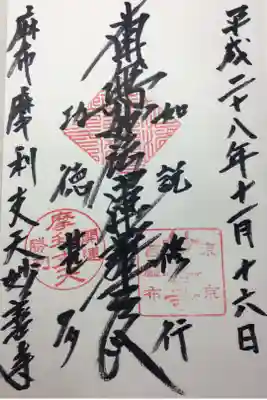 平成二十八年十一月十六日
如説修行
南無妙法蓮華経
功徳甚多
麻布摩利支天妙善寺
開運
摩利支天